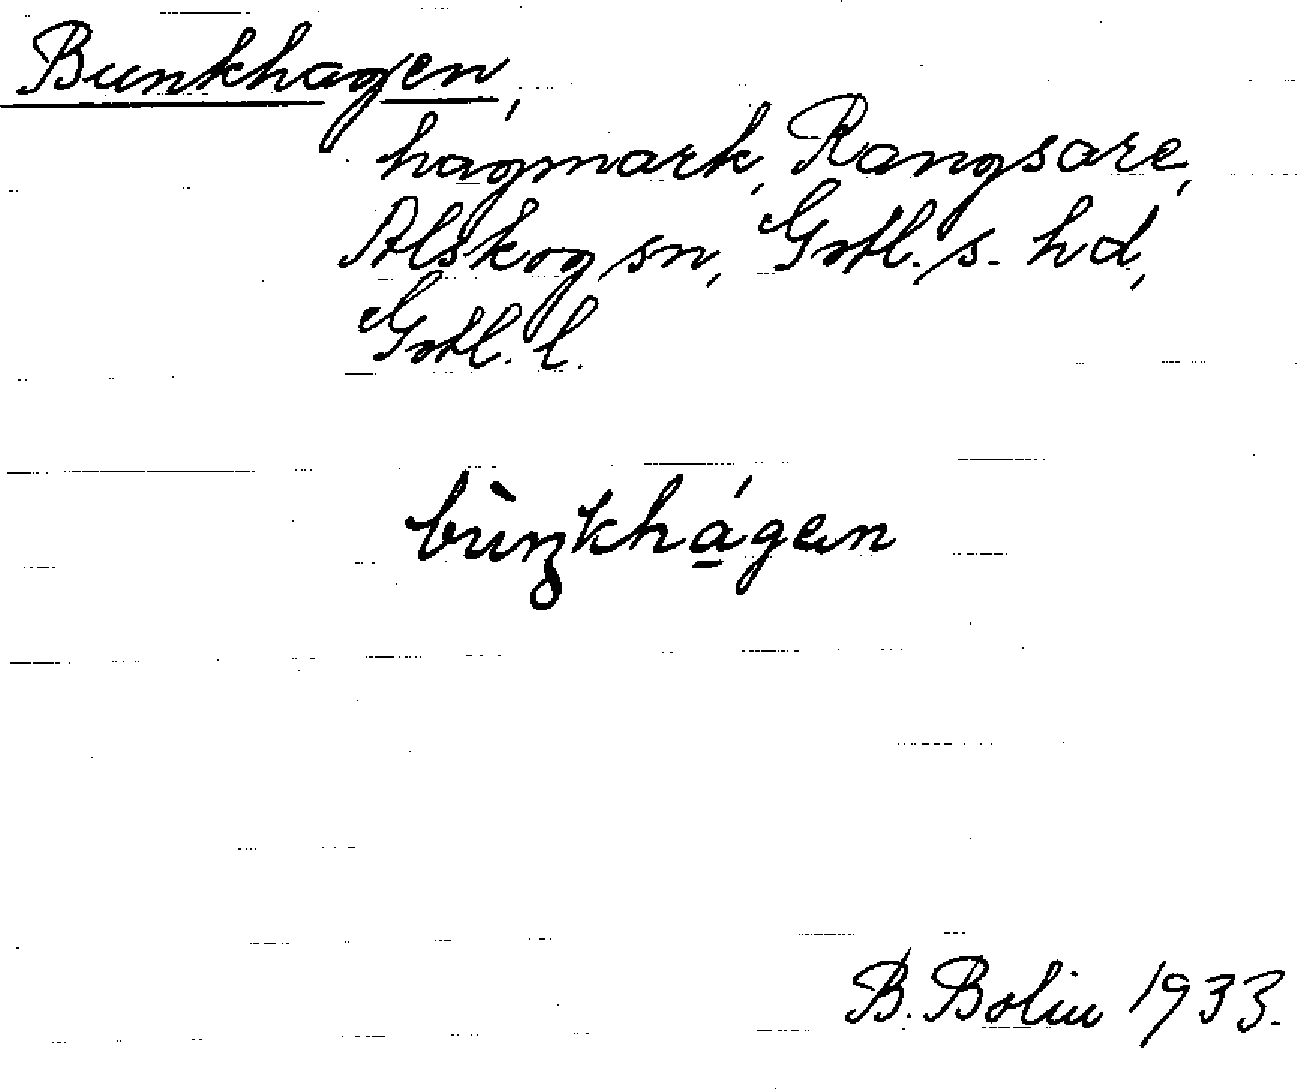 Bunkhagen,
hagmark, Rangsare,
Alskog sn, Gotl. s. hd,
Gotl. l.
bùŋkhá̱gen
B. Bolin 1933.